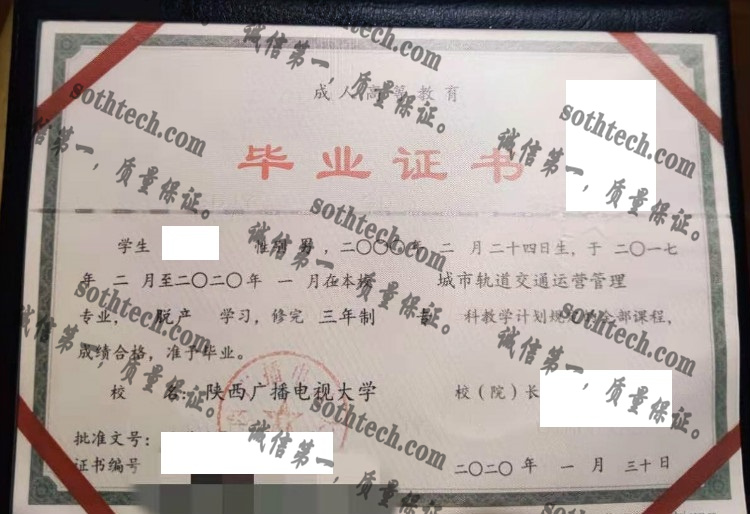 成人高等教育
毕业证书
学生 男，二〇〇〇年 二 月二十四日生，于 二〇一七
年 二 月至二〇二〇年 一 月在本校 城市轨道交通运营管理
专业， 脱产 学习，修完 三年制 科教学计划规定的全部课程，
成绩合格，准予毕业。
校 名：陕西广播电视大学 校（院）长
批准文号：
证书编号 二〇二〇年 一 月 三十日
sothtech.com
诚信第一，质量保证。
sothtech.com
诚信第一，质量保证。
sothtech.com
诚信第一，质量保证。
sothtech.com
诚信第一，质量保证。
sothtech.com
诚信第一，质量保证。
sothtech.com
诚信第一，质量保证。
sothtech.com
sothtech.com